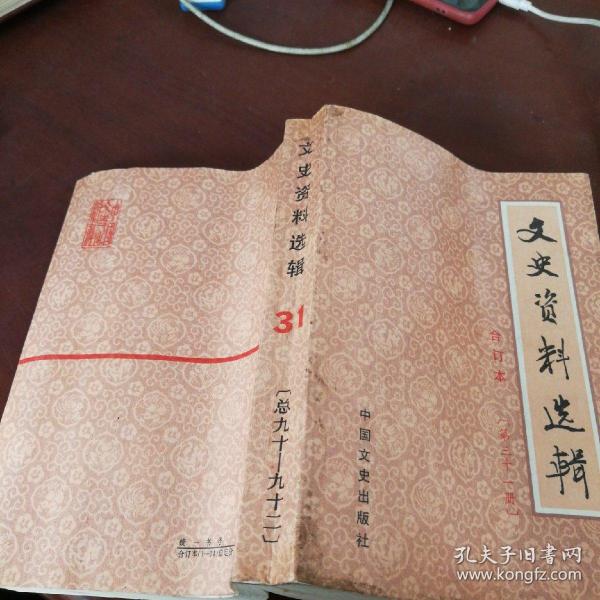 文史资料选辑
合订本
〔第三十一册〕
中国文史出版社
文史资料选辑
31
〔总九十—九十二〕
统一书号
孔夫子旧书网
www.kongfz.com